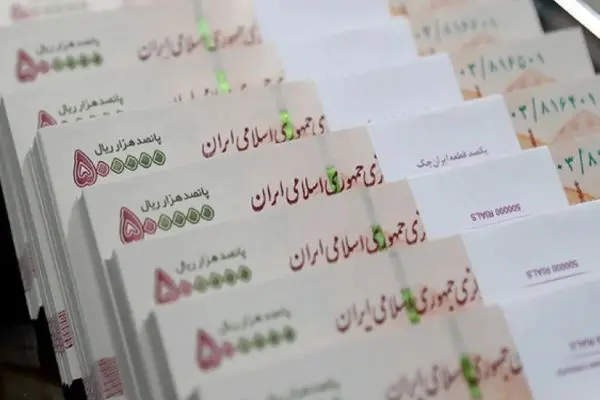 پانصد هزار ریال
۵۰۰۰۰۰
جمهوری اسلامی ایران
۰۳/۸۱۶۵۰۱
پانصد هزار ریال
۰۳/۸۱۶۴۰۱
پانصد هزار ریال
۵۰۰۰۰۰
جمهوری اسلامی ایران
یکصد قطعه ایران چک
۰۳/۸۱۶
پانصد هزار ریال
۵۰۰۰۰۰
زی جمهوری اسلامی ایران
500000 RIALS
پانصد هزار ریال
۵۰۰۰۰۰
جمهوری اسلامی ایران
500000 RIALS
پانصد هزار ریال
۵۰۰۰۰۰
زی جمهوری اسلامی ایران
جمهوری اسلامی ایران